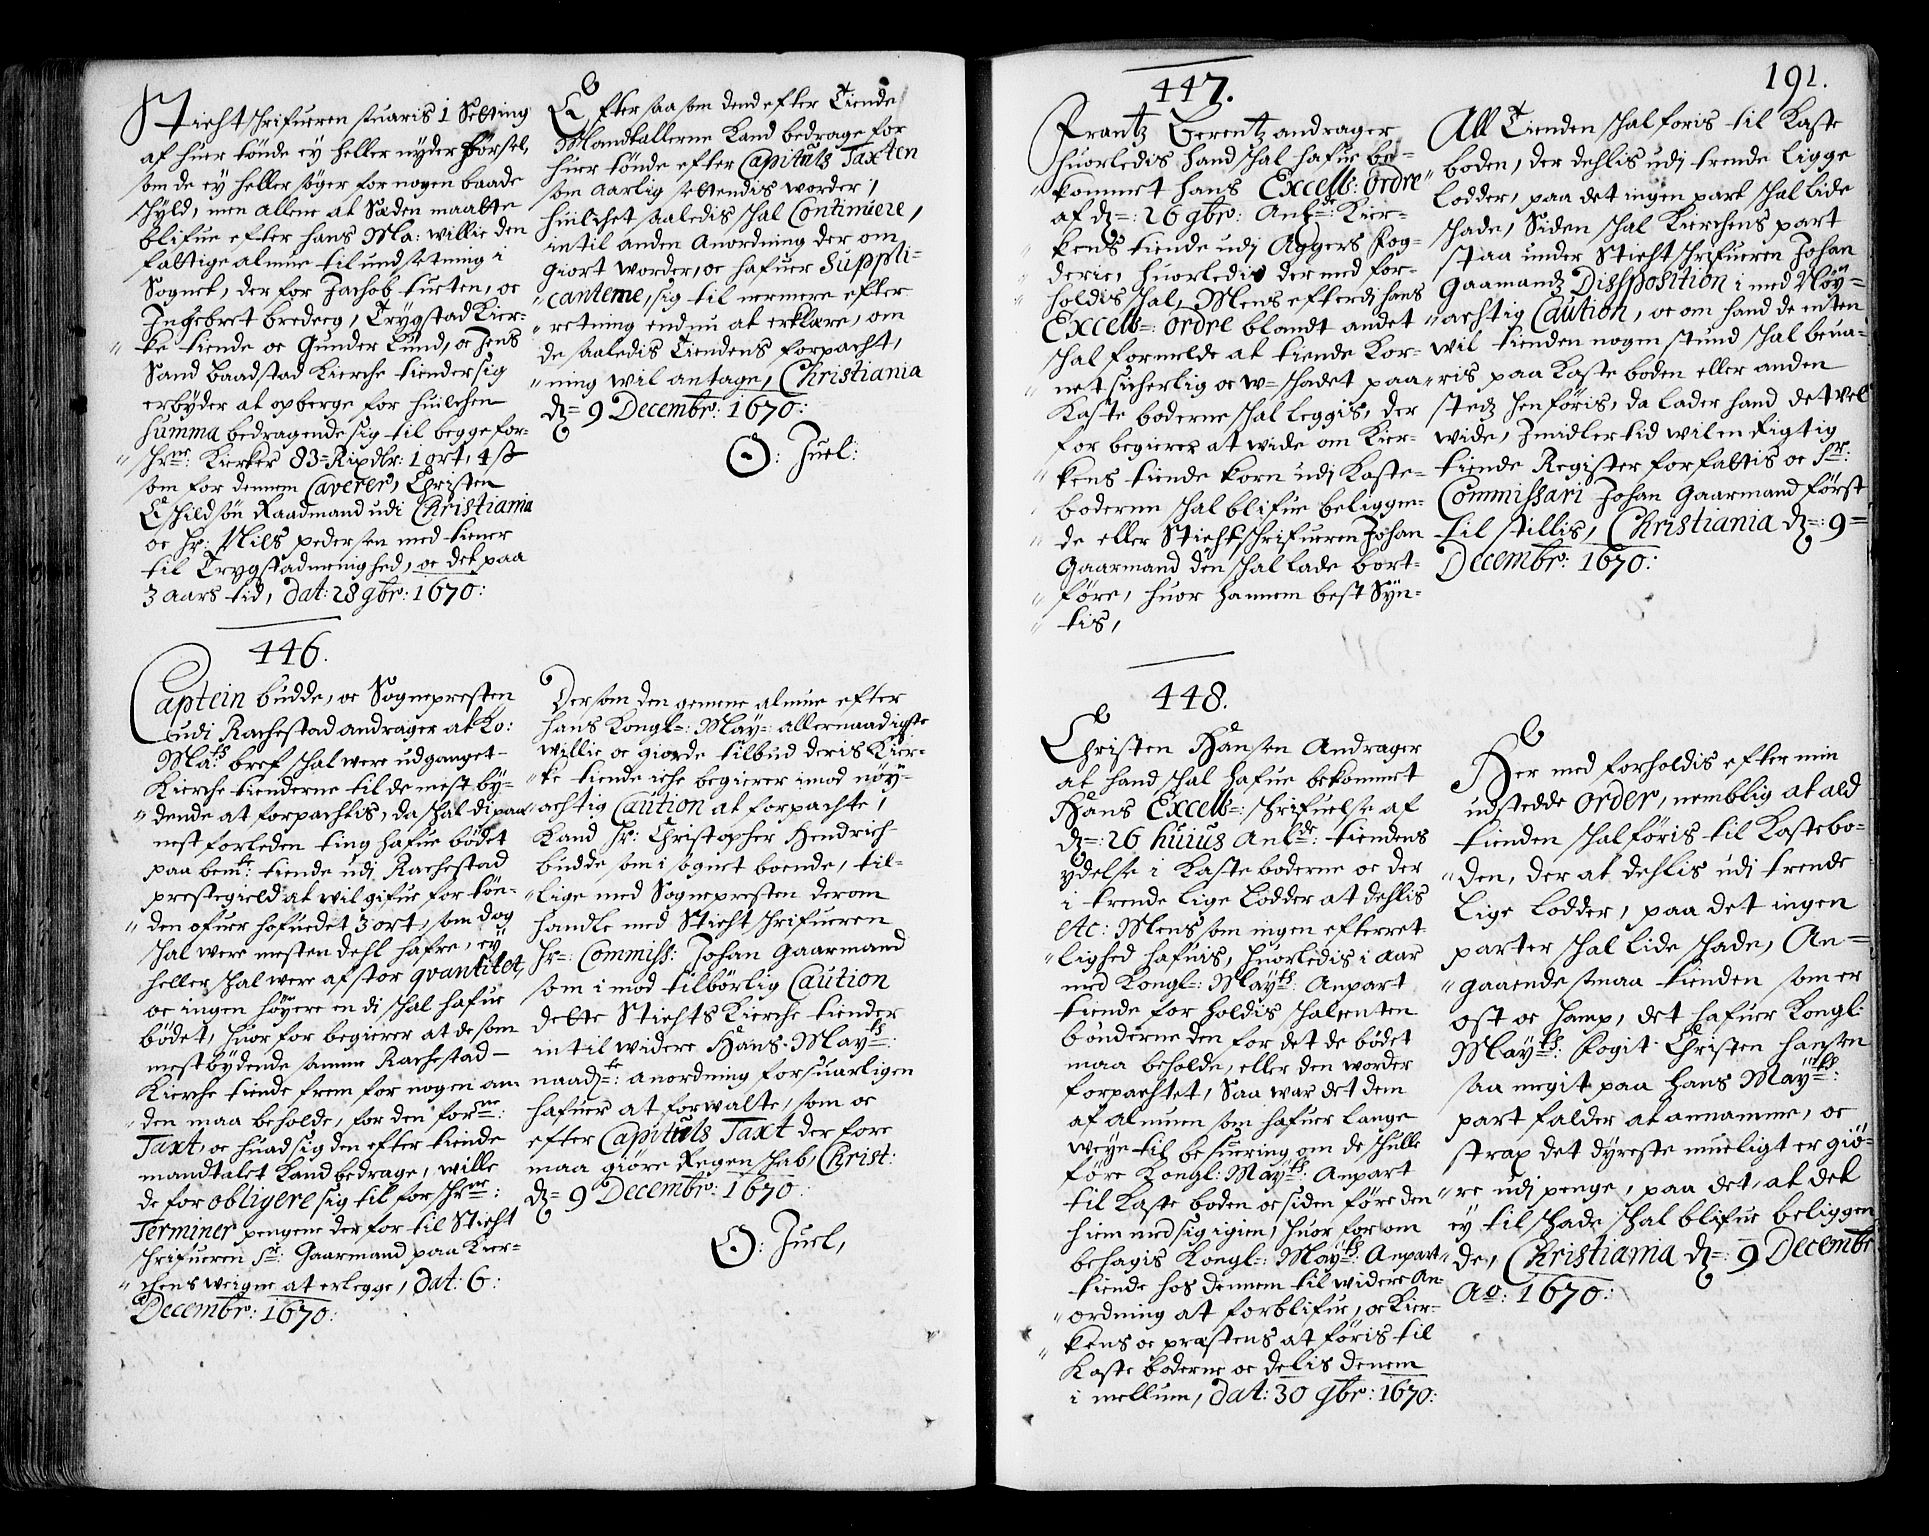 Sticht schrifueren suaris 1 Setting
af huer tönde ey heller nyder förfel,
som de ey heller söger for nogen baade
schyld, men allene at Sæden maatte
blifue efter hans Ma: willie den
fattige almue til undsetning i
Sognet, der for Jachob tueten, oc
Ingebret bredeeg, Trygstad Kier-
"ke tiende oc Gunder Lund, oc Jens
Sand Baadstad Kierche tiender sig
erbyder at opberge for huilchen
Summa bedragende sig til begge for-
"schrne: Kierker 83=Rixdlr: 1 ort, 4 ß
som for dennem Caverer, Christen
Eschildsön Raadmand udi Christiania
oc Hr: Nils pedersen med tiener
til Trygstad menighed, oc det paa
3 aars tid, dat: 28 9br: 1670:
Efftersaasom dend efter Tiende
Mandtallerne Kand bedrage for
huer tönde efter Capituls Taxten
som aarlig settendis worder,
huilchet saaledis schal Continuere,
intil anden Anordning der om
giort worder, oc hafuer Suppli-
"canterne, sig til nermere efter
"retning endnu at erklære, om
de saaledis Tiendens forpacht,
"ning wil antage, Christiania
dn= 9 Decembr: 1670:
O: Juel:
446.
Captein budde, oc Sognepresten
udi Rachestad andrager at Ko:
Mats bref schal were udganget
Kierche tienderne til de mest by-
"dende at forpachtis, da schal di paa
nest forleden ting hafue bödet
paa bemte: tiende udi Rachestad
prestegield at wil gifue for tön-
"den ofuer hofuedet 3 ort, som dog
schal were mesten dehl hafre, ey
heller schal were af stor qvantitet,
oc ingen höyere en di schal hafue
bödet, huor for begierer at de som
mestbydende samme Rachestad
Kierche tiende frem for nogen an
"den maa beholde, for den forne:
Taxt, oc huad sig den efter tiende
mandtalet Kand bedrage, wille
de for obligere sig til forschrne:
Terminer pengene der for til Sticht
schrifueren Sr: Gaarmand paa Kier-
"chens weigne at erlegge, dat: 6:
Decembr: 1670:
Dersom den gemene almue efter
hans Kongl: May: allernaadigste
willie oc giorde tilbud deris Kier-
"ke tiende iche begierer imod nöy-
"achtig Caution at forpachte,
Kand Hr: Christopher Hendrich
budde som i sognet boende, til-
"lige med Sognepresten derom
handle med Sticht schrifueren
Hr: Commiss: Johan Gaarmand
som imod tilbörlig Caution
dette Stichts Kierche tiender
intil widere Hans May:ts
naadste: anordning forsuarligen
hafuer at forwalte, som oc
efter Capituls Taxt der fore
maa giöre Regenschab, Christ:
dn= 9 Decembr: 1670:
O: Juel,
191.
447.
Frantz Berentz andrager
huorledis hand schal hafue be-
"kommet hans Excell: Ordre
af dn: 26 9br: Ankde: Kier-
"kens tiende udj Aggers Fog-
"derie, huorledis der med for-
"holdis schal, Mens efterdj hans
Excell: Ordre blandt andet
schal formelde at tiende Kor-
"net sicherlig oc w= schadet paa
Kaste boderne schal leggis, der
for begierer at wide om Kier-
"kens tiende korn udj Kaste-
"boderne schal blifue beliggen-
"de eller Stichtschrifueren Johan
Gaarmand den schal lade bort-
"före, huor hannem best Syn-
"tis,
All Tienden schal foris til Kaste
boden, der dehlis udj trende Ligge
Lodder, paa det ingen part schal lide
schade, Siden schal Kierchens part
staa under Sticht schrifueren Johan
Gaamandz Dissposition imod Nöy-
"achtig Caution, oc om hand de enten
wil tienden nogen stund schal beua-
"ris paa Kaste boden eller anden
stedz henföris, da lader hand det vel
wide, Imidlertid wil en Rigtig
tiende Register forfattis oc Sr:
Commissari Johan Gaarmand först
til stillis, Christiania dn: 9=
Decembr: 1670:
448.
Christen Hansen Andrager
at hand schal hafue bekommet
Hans Excell: schrifuelse af
dn: 26 huius Ankde: tiendens
ydelse i Kasteboderne oc der
i trende lige Lodder at dehlis
etc: Mens som ingen efterret-
"lighed hafuis, huorledis i aar
med Kongl: Mayts: Anpart
tiende forholdis schal, enten
bönderne den for det de bödet
maa beholde, eller den worder
forpachtet, Saa war det dem
af almuen som hafuer lange
weye til besuering om de schulle
före Kongl: Mayts: Anpart
til Kaste boden oc siden före den
hiem med sig igien, huor for om
behagis Kongl: Mayts: Anpart
tiende hos dennem til widere An-
"ordning at forblifue, oc Kier-
"kens oc præstens at föris til
Kaste boderne oc delis denem
imellum, dat: 30 9br: 1670:
Her med forholdis efter min
udstedde Order, nemblig at ald
tienden schal föris til Kastebo-
"den, der at dehlis udj trende
Lige Lodder, paa det ingen
parter schal lide schade, An-
"gaaende smaa tienden som er
Ost oc Hamp, det hafuer Kongl:
Mayts: Fogit Christen Hansen
saa megit paa Hans Mayts:
part falder at annamme, oc
strax det dyreste mueligt er giö-
"re udj penge, paa det, at det
ey til schade schal blifue beliggen
de, Christiania dn: 9 Decembr
Ao: 1670: